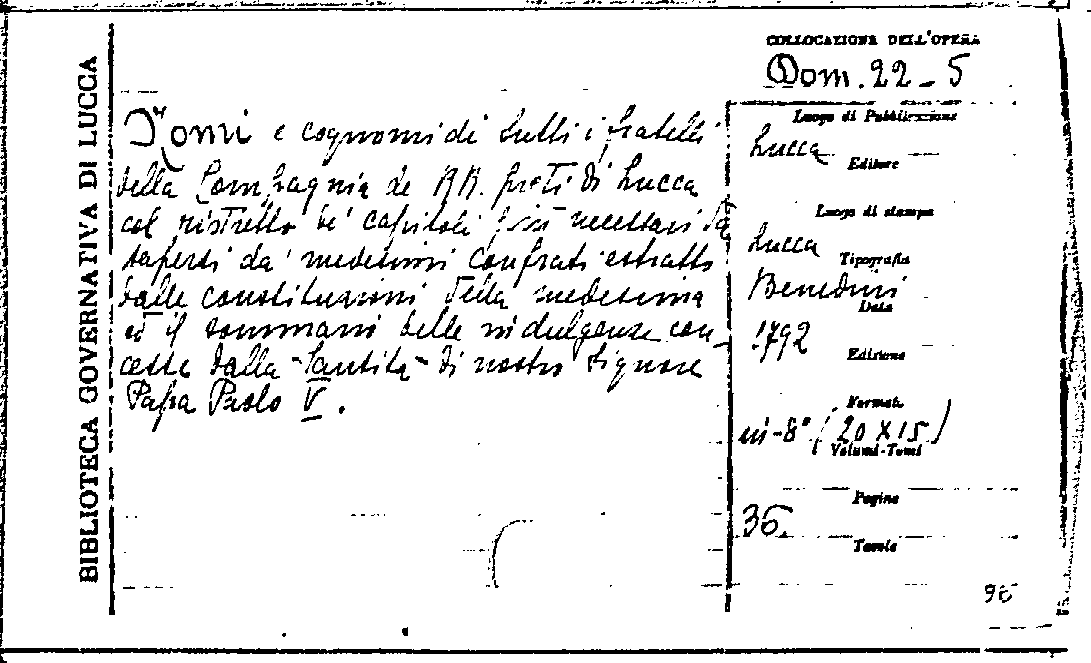 BIBLIOTECA GOVERNATIVA DI LUCCA
COLLOCAZIONE DELL'OPERA
Dom. 22-5
Nomi e cognomi di tutti i fratelli
della Compagnia de RR. preti di Lucca
col ristretto de' capitoli più necessari da
sapersi da' medesimi confrati estratto
dalle constituzioni della medesima
ed il sommario delle indulgenze con-
cesse dalla Santità di nostro Signore
Papa Paolo V.
Luogo di Pubblicazione
Lucca
Editore
Luogo di stampa
Lucca
Tipografia
Benedini
Data
1792
Edizione
Formato
in-8° (20 X 15)
Volumi-Tomi
Pagine
36.
Tavole